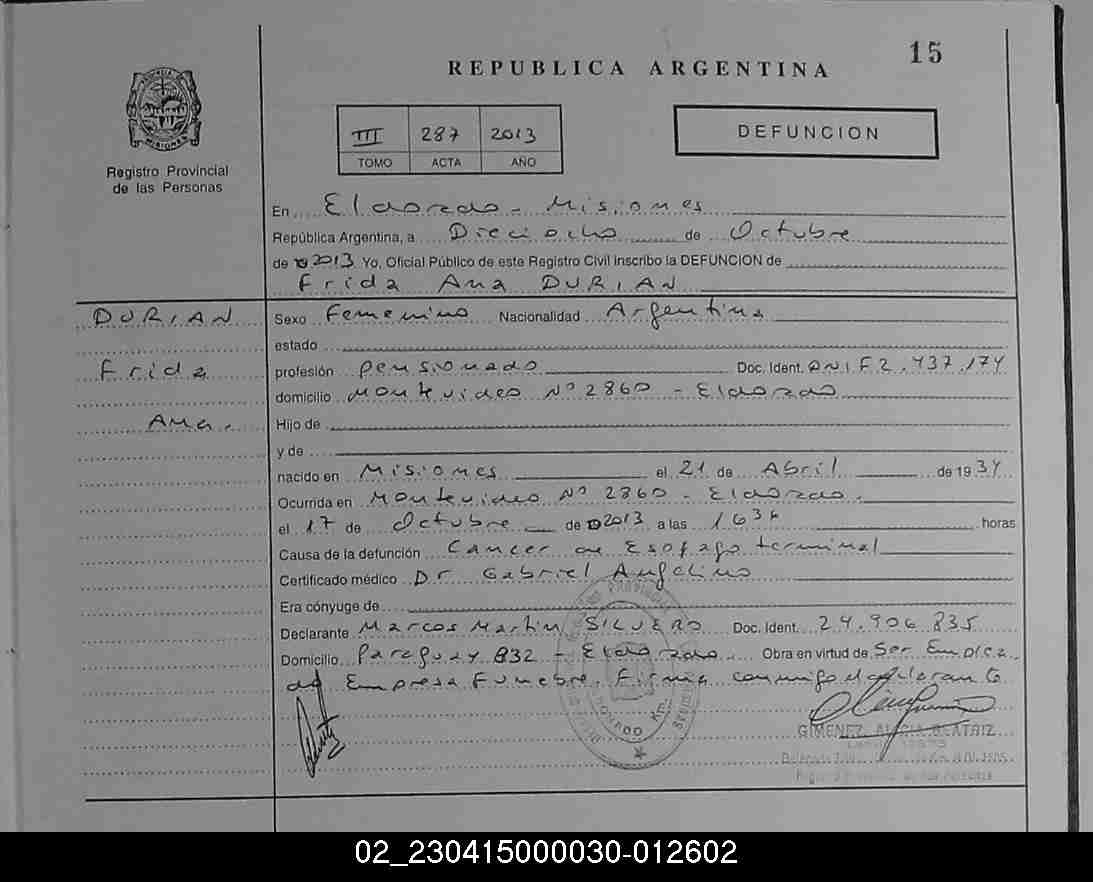 15
REPUBLICA ARGENTINA
III 287 2013
TOMO ACTA AÑO
DEFUNCION
PROVINCIA DE MISIONES
Registro Provincial
de las Personas
En Eldorado - Misiones
República Argentina, a Dieciocho de Octubre
de 2013 Yo, Oficial Público de este Registro Civil inscribo la DEFUNCION de
Frida Ana DURIAN
DURIAN
Frida
Ana.
Sexo Femenino Nacionalidad Argentina
estado
profesión pensionado Doc. Ident. DNI F 2.437.174
domicilio Montevideo Nº 2860 - Eldorado
Hijo de
y de
nacido en Misiones el 21 de Abril de 1934
Ocurrida en Montevideo Nº 2860 - Eldorado.
el 17 de Octubre de 2013 a las horas
Causa de la defunción Cancer de Esofago terminal
Certificado médico Dr Gabriel
Era cónyuge de
Declarante Marcos Martin SILVERO Doc. Ident. 24.906.835
Domicilio Paraguay 832 - Eldorado. Obra en virtud de Ser Emplea
do Empresa Funebre. Firma conmigo el declarante
GIMENEZ, ALICIA BEATRIZ
02_230415000030-012602